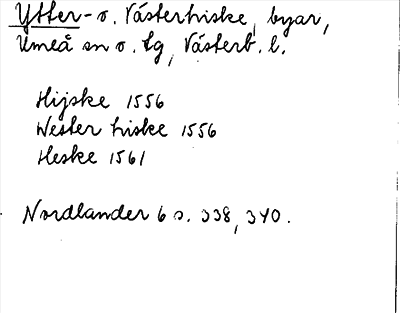 Ytter- o. Västerhiske, byar,
Umeå sn o. lg, Västerb. l.
Hijske 1556
Wester hiske 1556
Heske 1561
Nordlander 6 s. 338, 340.